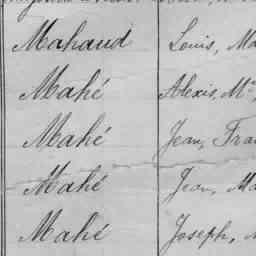 Mahaud Louis, Ma
Mahé Alexis, M.
Mahé Jean, Fra
Mahé Jean, Ma
Mahé Joseph,